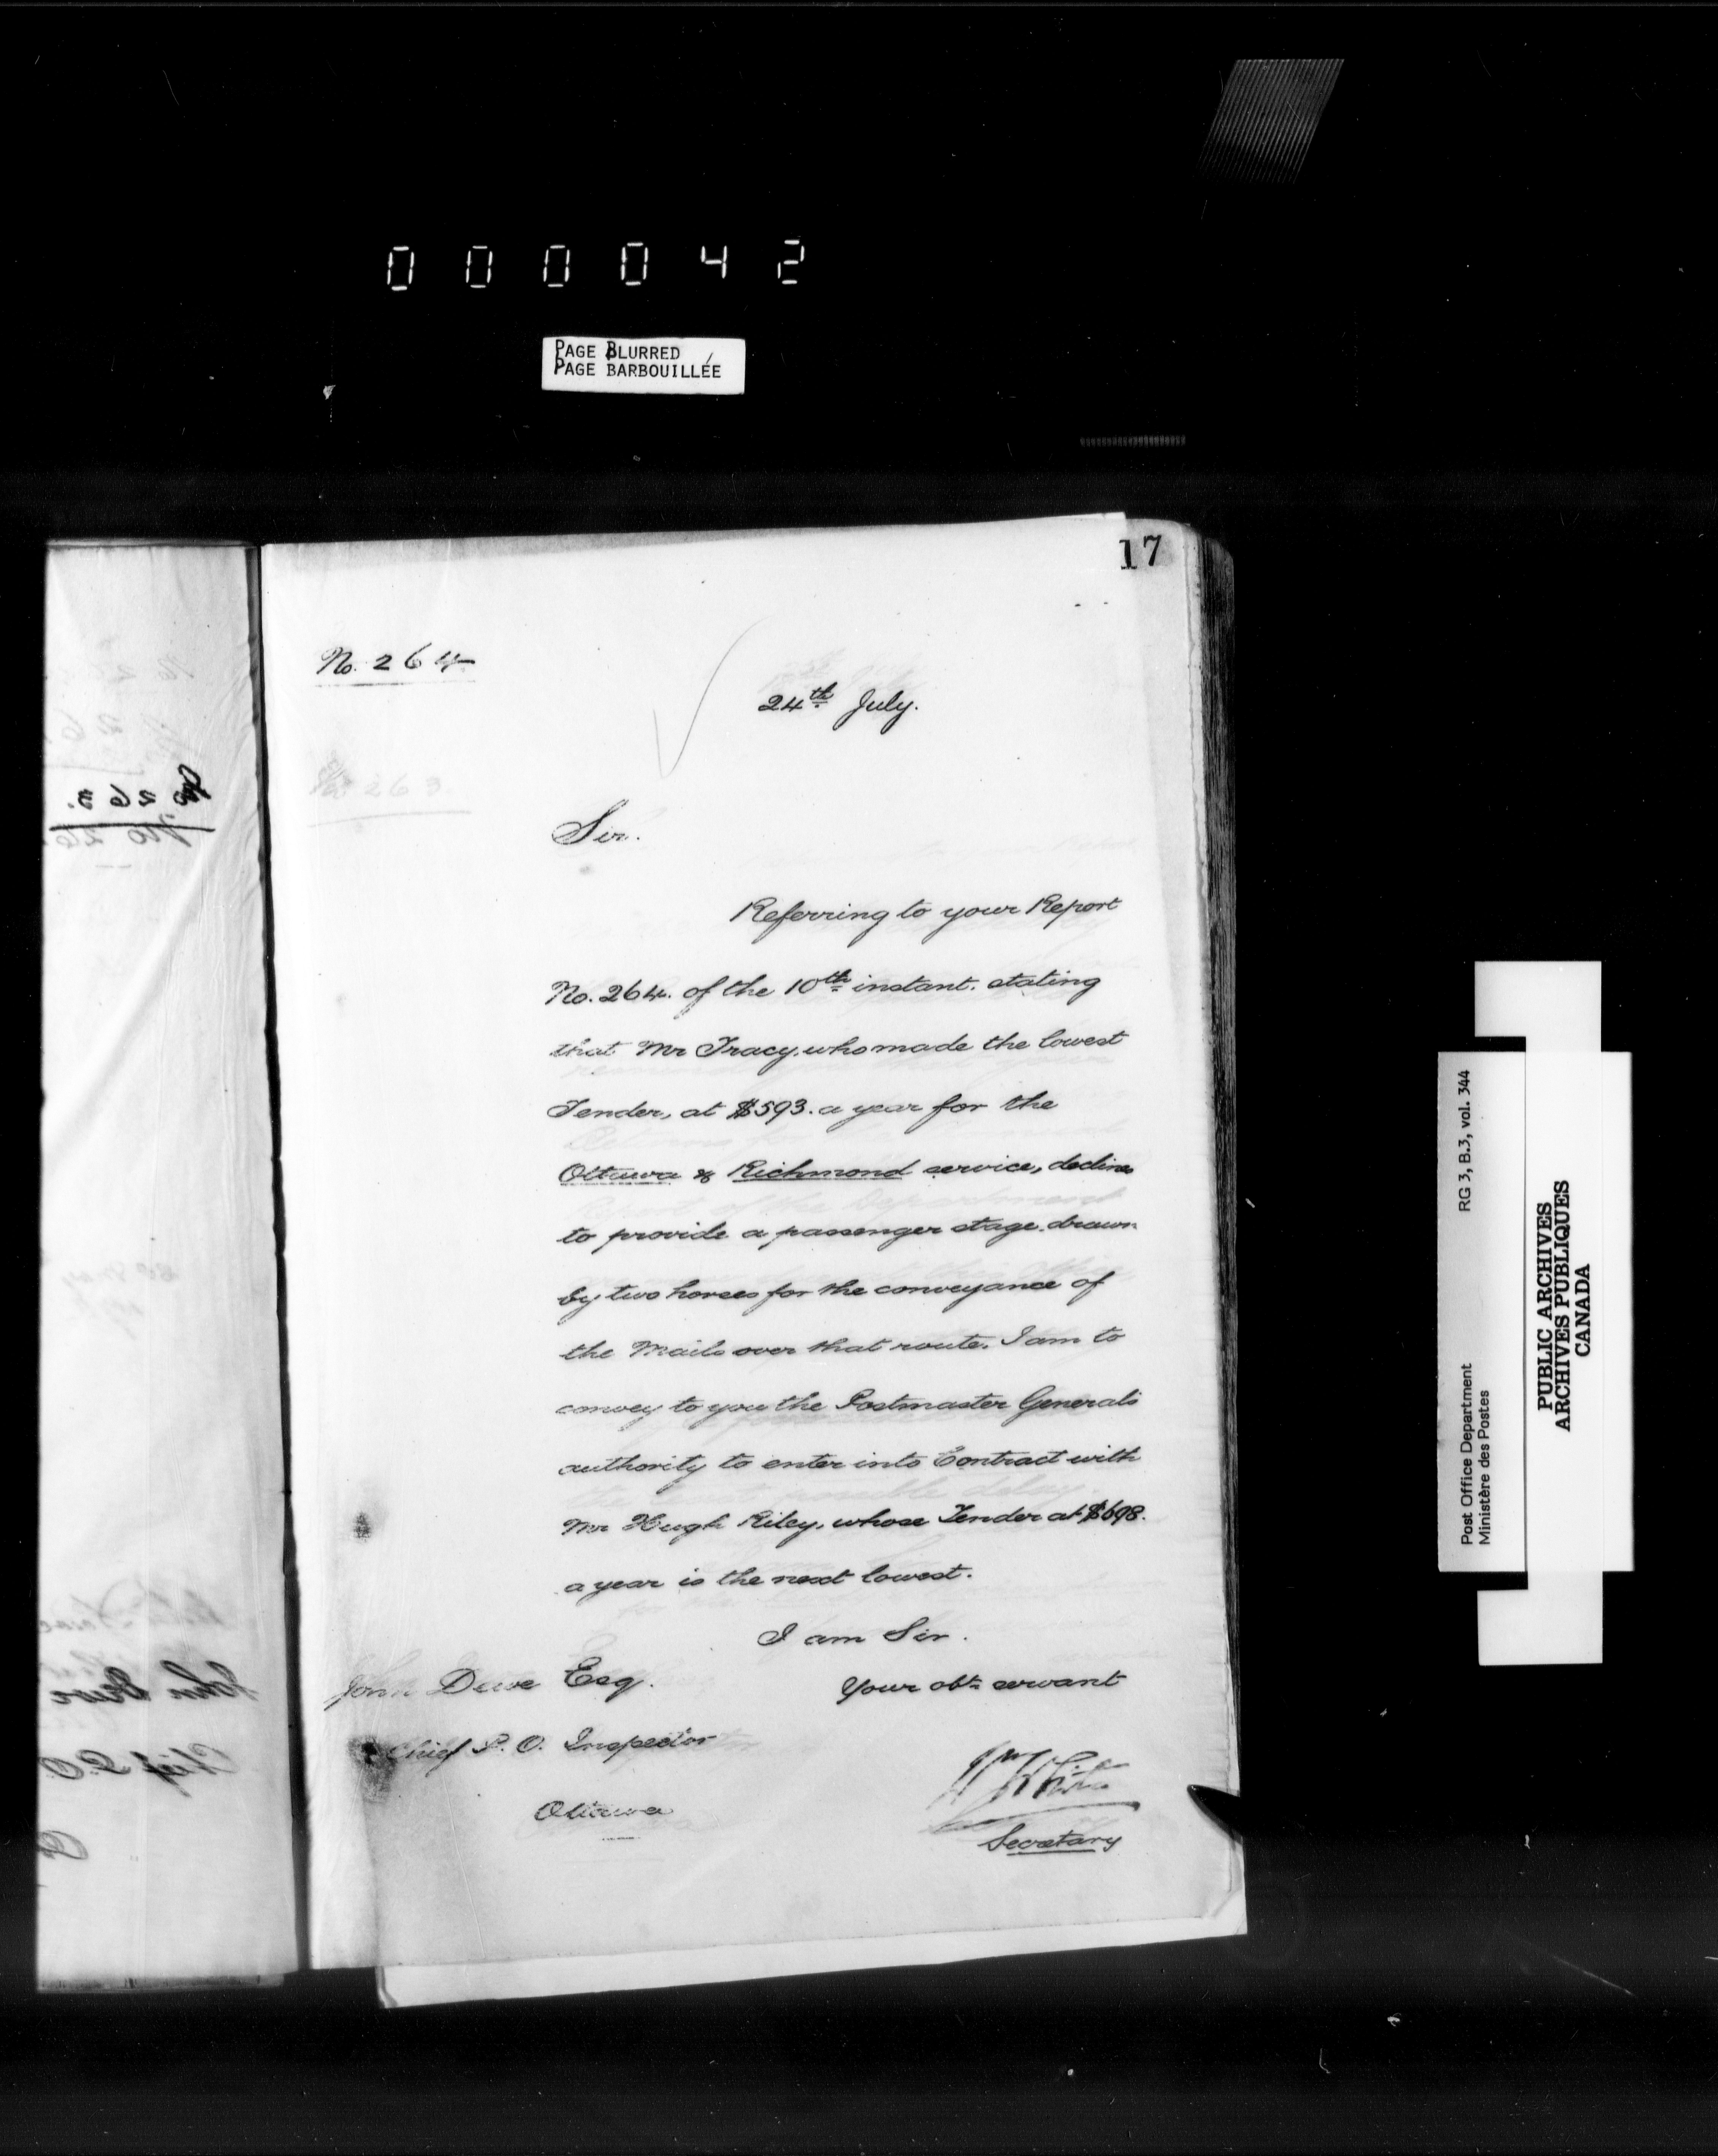 000042
PAGE BLURRED
PAGE BARBOUILLÉE
17
No. 264
24th July.
No 263
Sir.
Referring to your Report
No. 264. of the 10th instant. stating
that Mr Tracy, who made the lowest
Tender, at $593. a year for the
Ottawa & Richmond service, declines
to provide a passenger stage drawn
by two horses for the conveyance of
the Mails over that route. I am to
convey to you the Postmaster General's
authority to enter into Contract with
Mr Hugh Riley, whose Tender at $698.
a year is the next lowest.
I am Sir.
Your obt servant
John Dewe Esq.
Chief P. O. Inspector
Ottawa
Wm White
Secretary
Post Office Department
Ministère des Postes
RG 3, B.3, vol. 344
PUBLIC ARCHIVES
ARCHIVES PUBLIQUES
CANADA